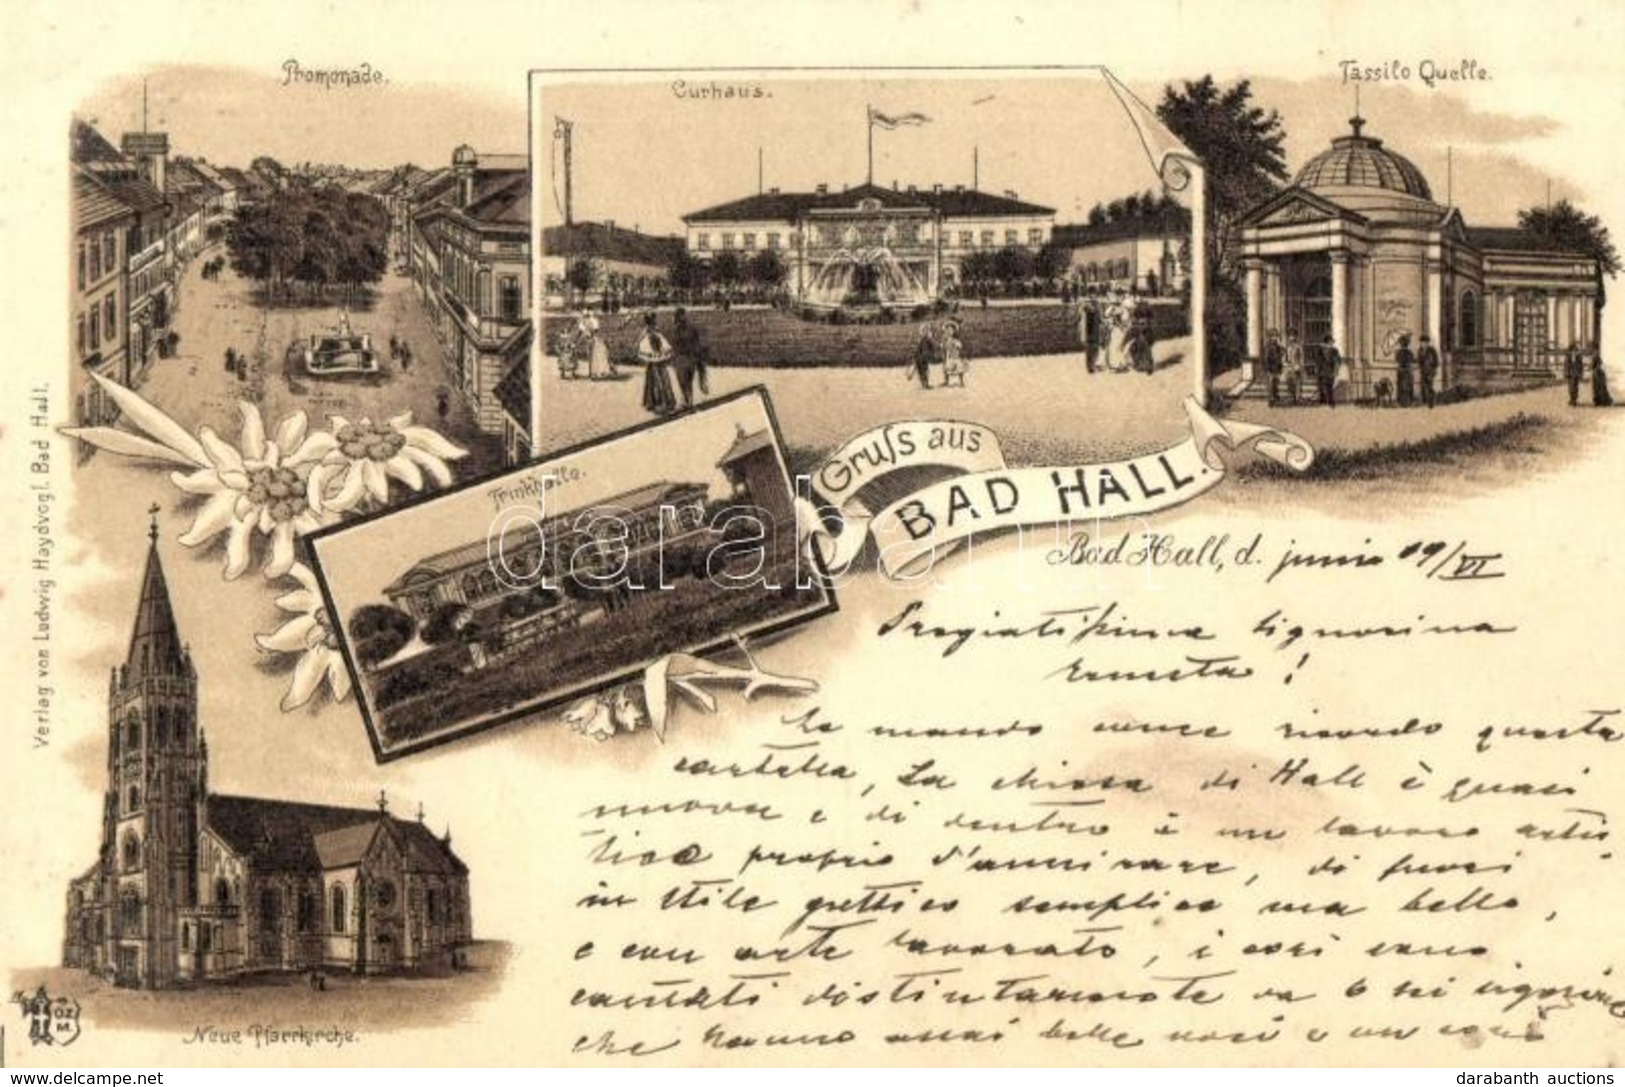 Promenade.
Curhaus.
Tassilo Quelle.
Trinkhalle.
Gruss aus
BAD HALL.
Bad Hall, d. junio 19/VI
Pregiatissima signorina
La mando come ricordo questa
cartella, La chiesa di Hall è quasi
nuova e di dentro è un lavoro artis
tico proprio d'ammirare, di fuori
in stile gottico semplice ma bello,
e con arte lavorato, i cori sono
cantati distintamente da 6 sei signorine
che hanno assai belle voci e un
Neue Pfarrkirche.
Verlag von Ludwig Haydvogl. Bad Hall.
OZ
M.
darabanth
darabanth auctions